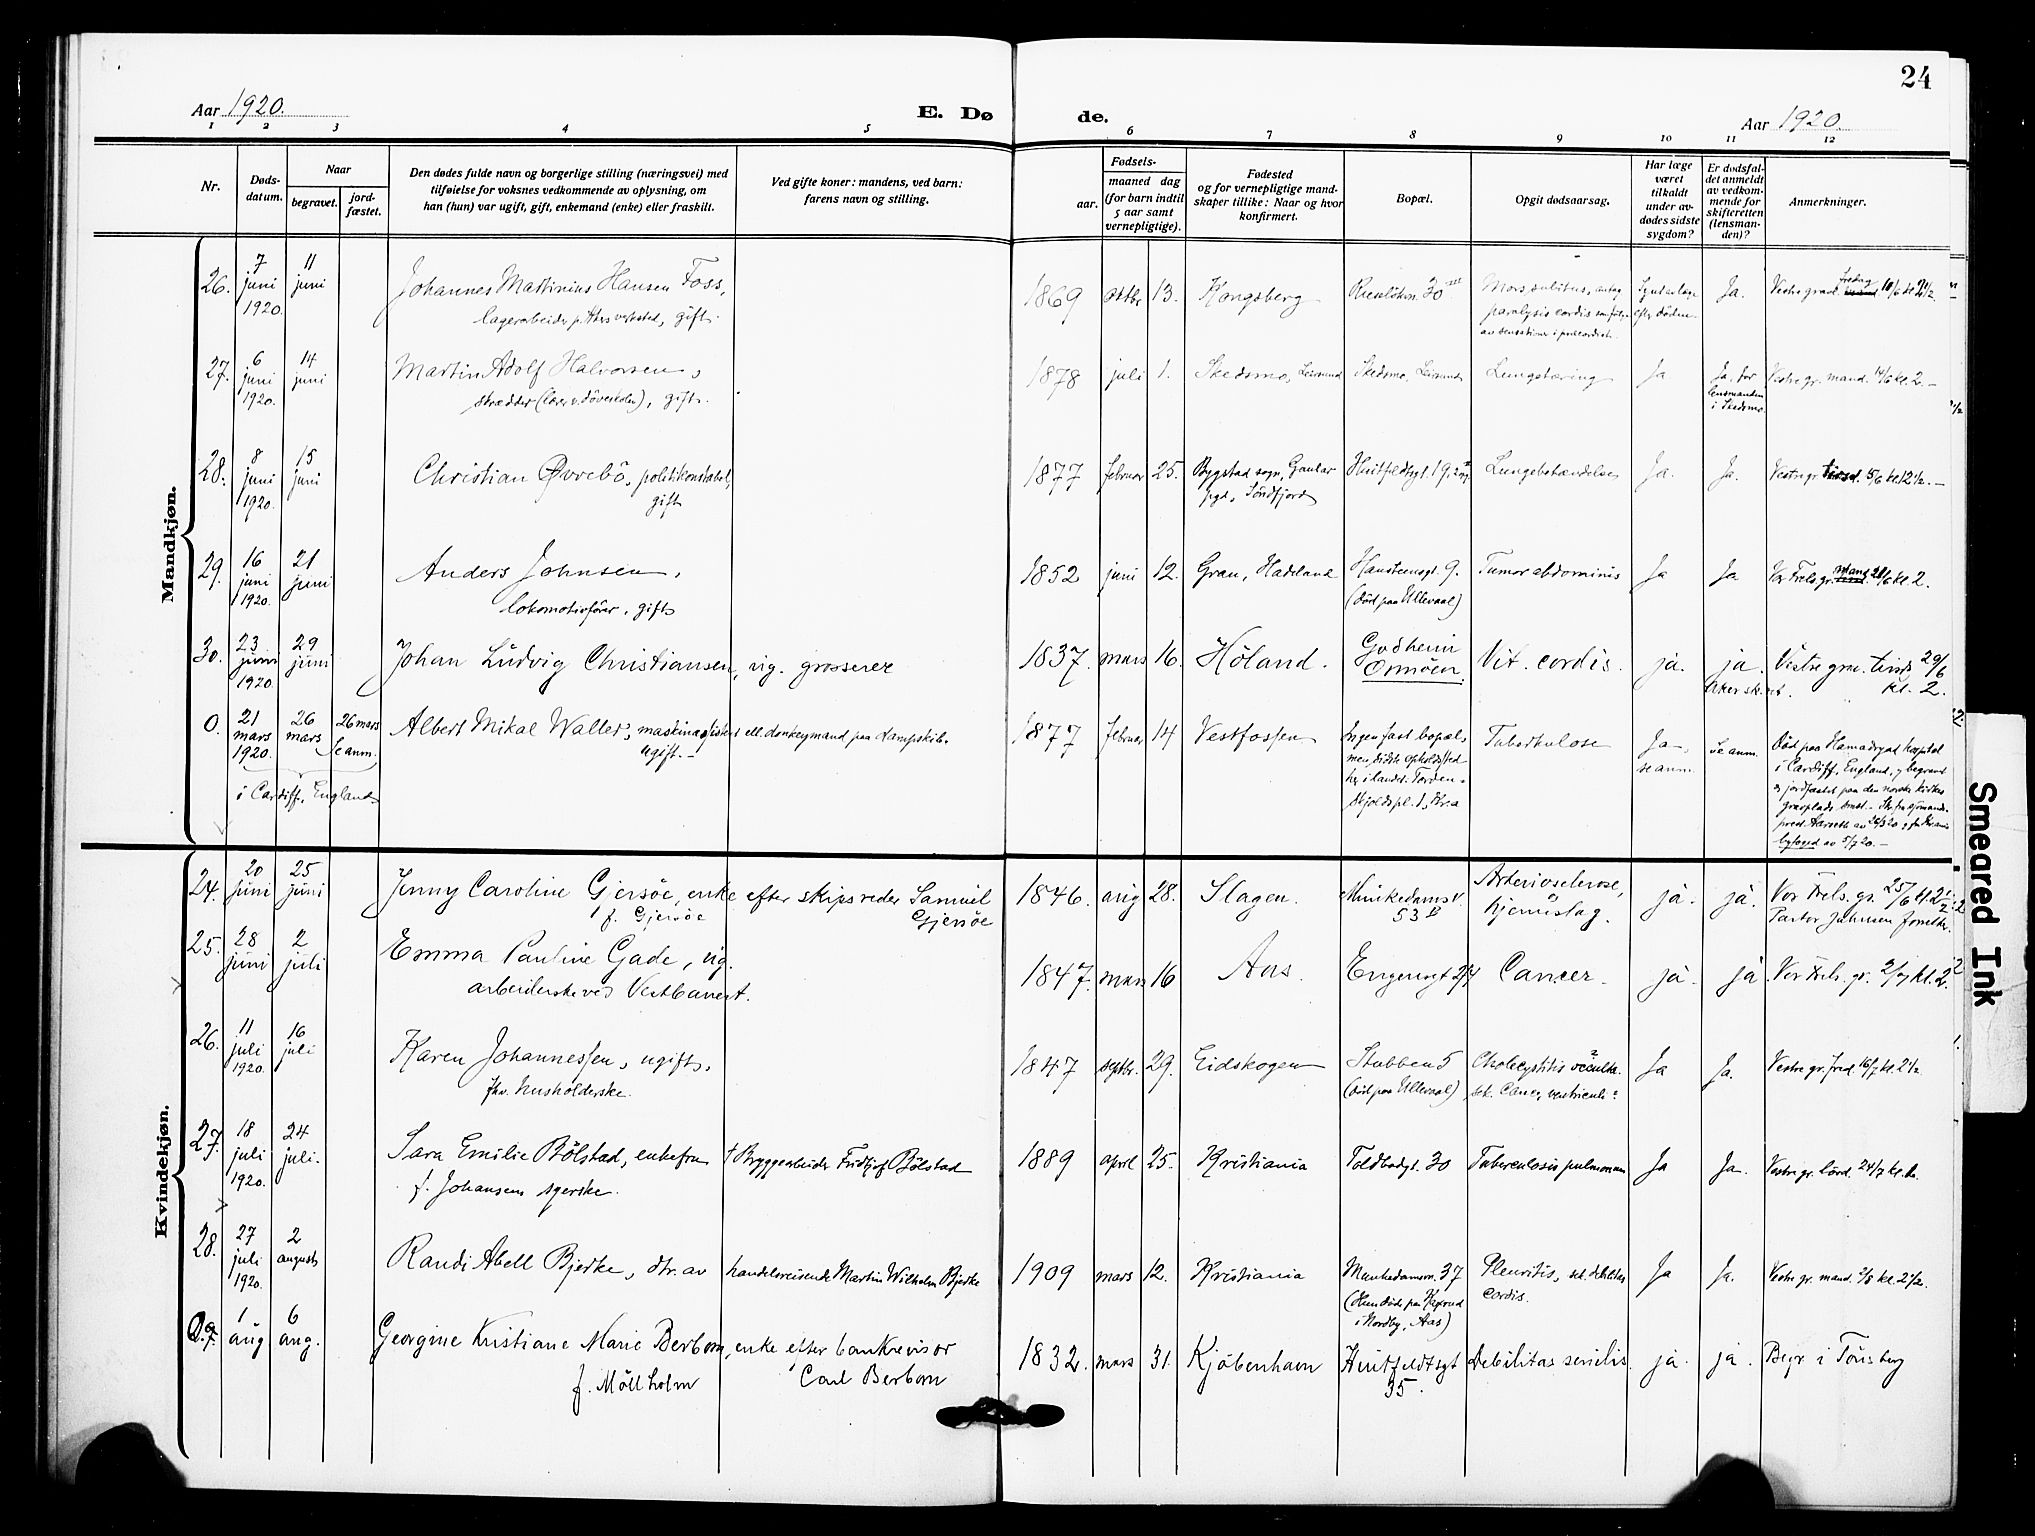 24
Aar 1920.
E. Dø
de.
Aar 1920.
1 2 3 4 5 6 7 8 9 10 11 12
Nr.
Døds-
datum.
Naar
begravet.
jord-
fæstet.
Den dødes fulde navn og borgerlige stilling (næringsvei) med
tilføielse for voksnes vedkommende av oplysning, om
han (hun) var ugift, gift, enkemand (enke) eller fraskilt.
Ved gifte koner: mandens, ved barn:
farens navn og stilling.
Fødsels-
aar.
maaned dag
(for barn indtil
5 aar samt
vernepligtige).
Fødested
og for vernepligtige mand-
skaper tillike: Naar og hvor
konfirmert.
Bopæl.
Opgit dødsaarsag.
Har læge
været
tilkaldt
under av-
dødes sidste
sygdom?
Er dødsfal-
det anmeldt
av vedkom-
mende for
skifteretten
(lensman-
den)?
Anmerkninger.
Mandkjøn.
26. 7 juni 1920. 11 juni Johannes Martinius Hansen Foss,
lagerarbeider p. Akers verksted, gift.
1869 oktbr. 13. Kongsberg 30 III Mors subitus, antag.
paralysis cordis
efter døden. Ja.
27. 6 juni 1920. 14 juni Martin Adolf Halvorsen,
skrædder (lærer v. døveskolen), gift.
1878 juli 1. Skedsmo, Leirsund Skedsmo, Leirsund Lungetæring Ja Ja, for
lensmanden
i Skedsmo.
Vestre gr. mand. 14/6 kl. 2.-
28. 8 juni 1920. 15 juni Christian Øvrebö, politikonstabel,
gift
1877 februar 25. Bygstad sogn, Gaular
pgd., Söndfjord
Huitfeldtsgt. 19. Lungebetændelse Ja. Ja. Vestre gr. 15/6 kl. 12 1/2.-
29. 16 juni 1920. 21 juni Anders Johnsen,
lokomotivförer, gift
1852 juni 12. Gran, Hadeland Hansteensgt. 9.
(död paa Ullevaal)
Tumor abdominis Ja Ja Vor Frels. gr. mand. 21/6 kl. 2.
30. 23 juni 1920. 29 juni Johan Ludvig Christiansen, ug. grosserer
1837. mars 16. Höland. Godheim
Ormöen.
Vit. cordis. ja. ja.
Aker sk.ret.
Vestre grav. tirsd. 29/6
kl. 2.
0. 21 mars 1920. 26 mars 26 mars
Se anm.
i Cardiff, England
Albert Mikal Waller, maskinassistent ell. donkeymand paa dampskib.
ugift.-
1877 februar 14 Vestfossen Ingen fast bopæl,
men sidste opholdssted
her i landet: Torden-
skjoldspl. 1, Kr.a
Tuberkulose Ja-,
se anm.
Se anm.
Död paa Hamadryad hospital
i Cardiff, England, og begravet
og jordfæstet paa den norske kirkes
gravplads smst.- Skr. fra sjømands-
prest av 26/3 20 og fra
byfoged av 5/7 20.-
Kvindekjøn.
24. 20 juni 25 juni Jenny Caroline Gjersöe, enke efter skipsreder Samuel
f. Gjersöe Gjersöe
1846. aug 28. Slagen. Munkedamsv.
53 II
Arterioselerose,
hjerneslag.
ja. ja. Vor Frels. gr. 25/6 kl. 2 1/2.
Pastor Jahnsen forretter.
25. 28 juni 2 juli Emma Pauline Gade, ug.
arbeiderske ved Vestbanen.
1847. mars 16 Aas. Cancer. ja. ja Vor Frels. gr. 2/7 kl. 2.
26. 11 juli 1920. 16 juli Karen Johannessen, ugift,
fhv. husholderske.
1847 septbr. 29. Eidskogen Stubben 5
(död paa Ullevaal)
Cholecystitis occulta
sek. Cancer ventriculi?
Ja Ja. Vestre gr. fred. 16/7 kl. 2 1/2.
27. 18 juli 1920. 24 juli. Sara Emilie Bölstad, enkefru † Bryggearbeider Fridtjof Bölstad
f. Johansen, syerske.
1889 april 25. Kristiania Toldbodgt. 30 Tuberculosis pulmonum Ja Ja. Vestre gr. lörd. 24/7 kl. 12.
28. 27 juli 1920. 2 august Randi Abell Bjerke, dtr. av handelsreisende Martin Wilhelm Bjerke
1909 mars 12. Kristiania Munkedamsv. 37
i Nordby, Aas)
Pleuritis, sek. debilitas
cordis.
Ja Ja. Vestre gr. mand. 2/8 kl. 2 1/2.
29. 1 aug 6 aug. Georgine Kristiane Marie Berbom, enke efter bankrevisor
f. Möllholm Carl Berbom
1832. mars 31. Kjöbenhavn Huitfeldtsgt
35.
Debilitas senilis. ja. ja. Begr. i Tönsberg
Smeared Ink